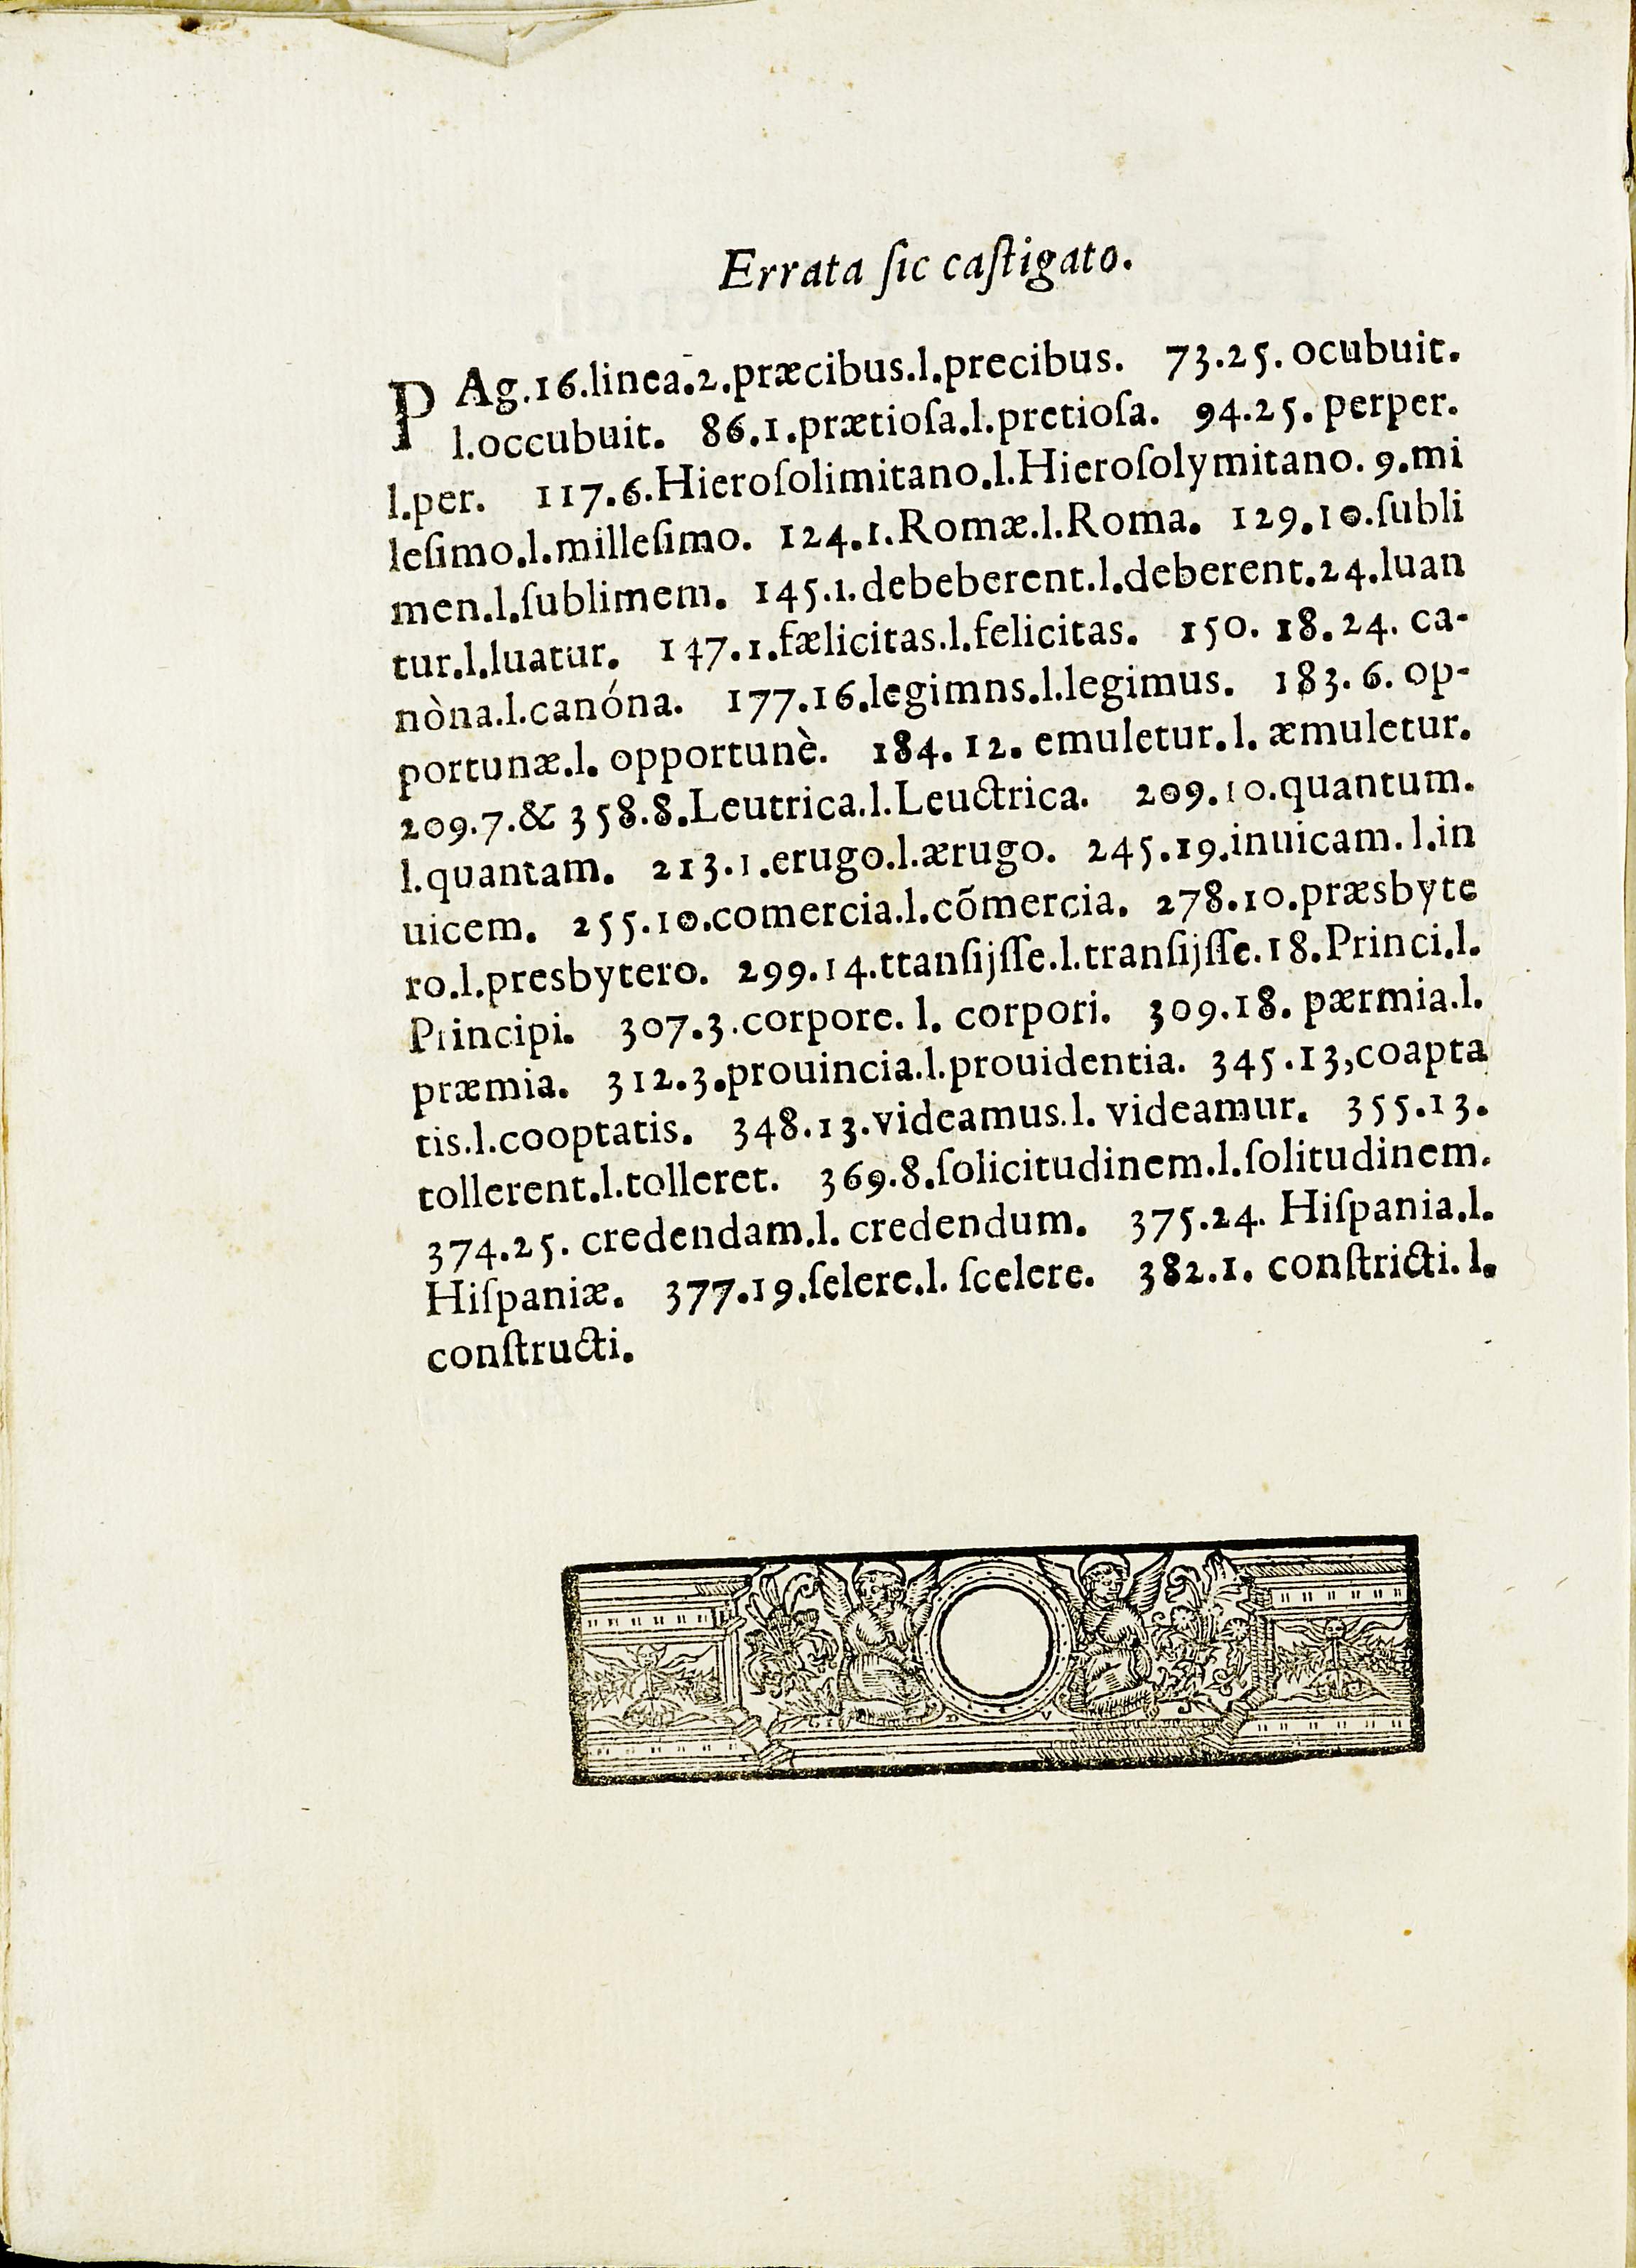 Errata ſic caſtigato.
PAg.16.linea.2.præcibus.l.precibus. 73.25. ocubuit.
l.occubuit. 86.1.prætioſa.l.pretioſa. 94.25. perper.
l.per. 117.6.Hieroſolimitano.l.Hieroſolymitano. 9.mi
leſimo.l.milleſimo. 124.1.Romæ.l.Roma. 129.10.ſubli
men.l.ſublimem. 145.1.debeberent.l.deberent.24.luan
tur.l.luatur. 147.1.fælicitas.l.felicitas. 150. 18.24. ca-
nòna.l.canóna. 177.16.legimns.l.legimus. 183. 6. op-
portunæ.l. opportunè. 184. 12. emuletur. l. æmuletur.
209.7.& 358.8.Leutrica.l.Leuctrica. 209.10.quantum.
l.quantam. 213.1.erugo.l.ærugo. 245.19.inuicam. l.in
uicem. 255.10.comercia.l.cõmercia. 278.10.præsbyte
ro.l.presbytero. 299.14.ttanſijſſe.l.tranſijſſe.18.Princi.l.
Principi. 307.3.corpore. l. corpori. 309.18. pærmia.l.
præmia. 312.3.prouincia.l.prouidentia. 345.13,coapta
tis.l.cooptatis. 348.13.videamus.l. videamur. 355.13.
tollerent.l.tolleret. 369.8.ſolicitudinem.l.ſolitudinem.
374.25. credendam.l. credendum. 375.24. Hiſpania.l.
Hiſpaniæ. 377.19.ſelere.l. ſcelere. 382.1. conſtricti. l.
conſtructi.